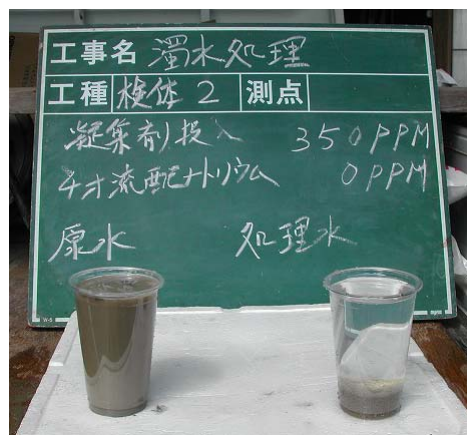 工事名 濁水処理
工種 検体2 測点
凝集剤投入 350PPM
チオ流酸ナトリウム 0PPM
原水 処理水
W-5